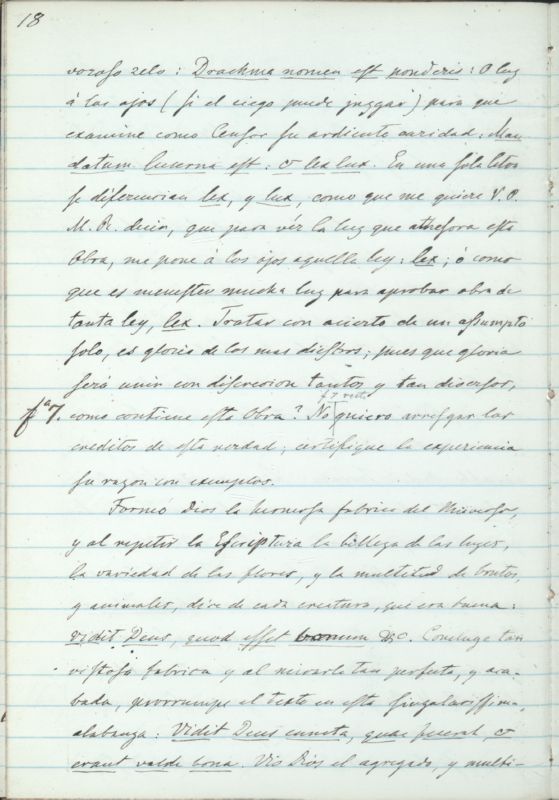 18
voroso zelo: Drackma nomen est ponderis: O luz
á los ojos (si el ciego puede juzgar) para que
examine como Censor su ardiente caridad: Man
datum lucerna est: & lex lux. En una sola letra
se diferencian lex, y lux, como que me quiere V. P.
M. R. decir, que para vér la luz que athesora esta
Obra, me pone á los ojos aquella ley: lex; ó como
que es menester mucha luz para aprobar obra de
tanta ley, lex. Tratar con acierto de un assumpto
solo, es gloria de los mas diestros; pues que gloria
será unir con discrecion tantos y tan diversos,
fª 7. como contiene esta Obra? No quiero arresgar los
f 7 recto
creditos de esta verdad, certifique la experiencia
su razon con exemplos.
Formó Dios la hermosa fabrica del Universo,
y al repetir la Escriptura la belleza de las luces,
la variedad de las flores, y la multitud de brutos,
y animales, dice de cada creatura, que era buena:
vidit Deus, quod esset bonum &c. Concluye tan
vistosa fabrica y al mirarla tan perfecta, y aca-
bada, prorrumpe el texto en esta singularissima
alabanza: Vidit Deus cuncta, quae fecerat, &
erant valde bona. Vió Dios el agregado, y multi-